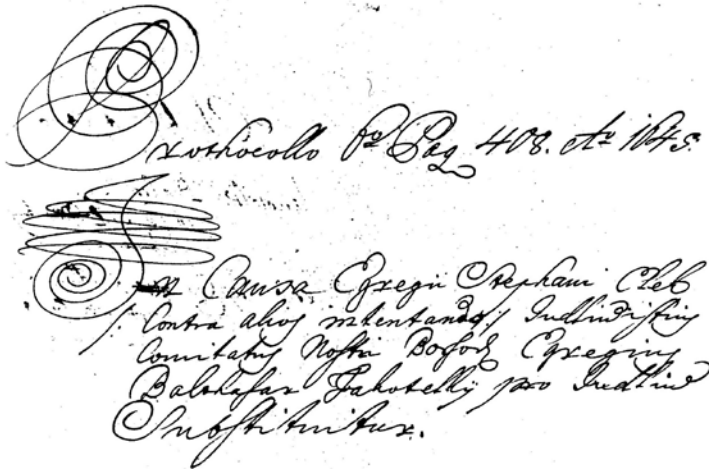 Prothocollo Pº Pag 408. Aº 1645.
In Causa Egregii Stephani Cseb
contra alios intentanda, Judlium istius
Comitatus Nostri Borsod Egregius
Balthasar Fakotelky pro Judlium
Substituitur.